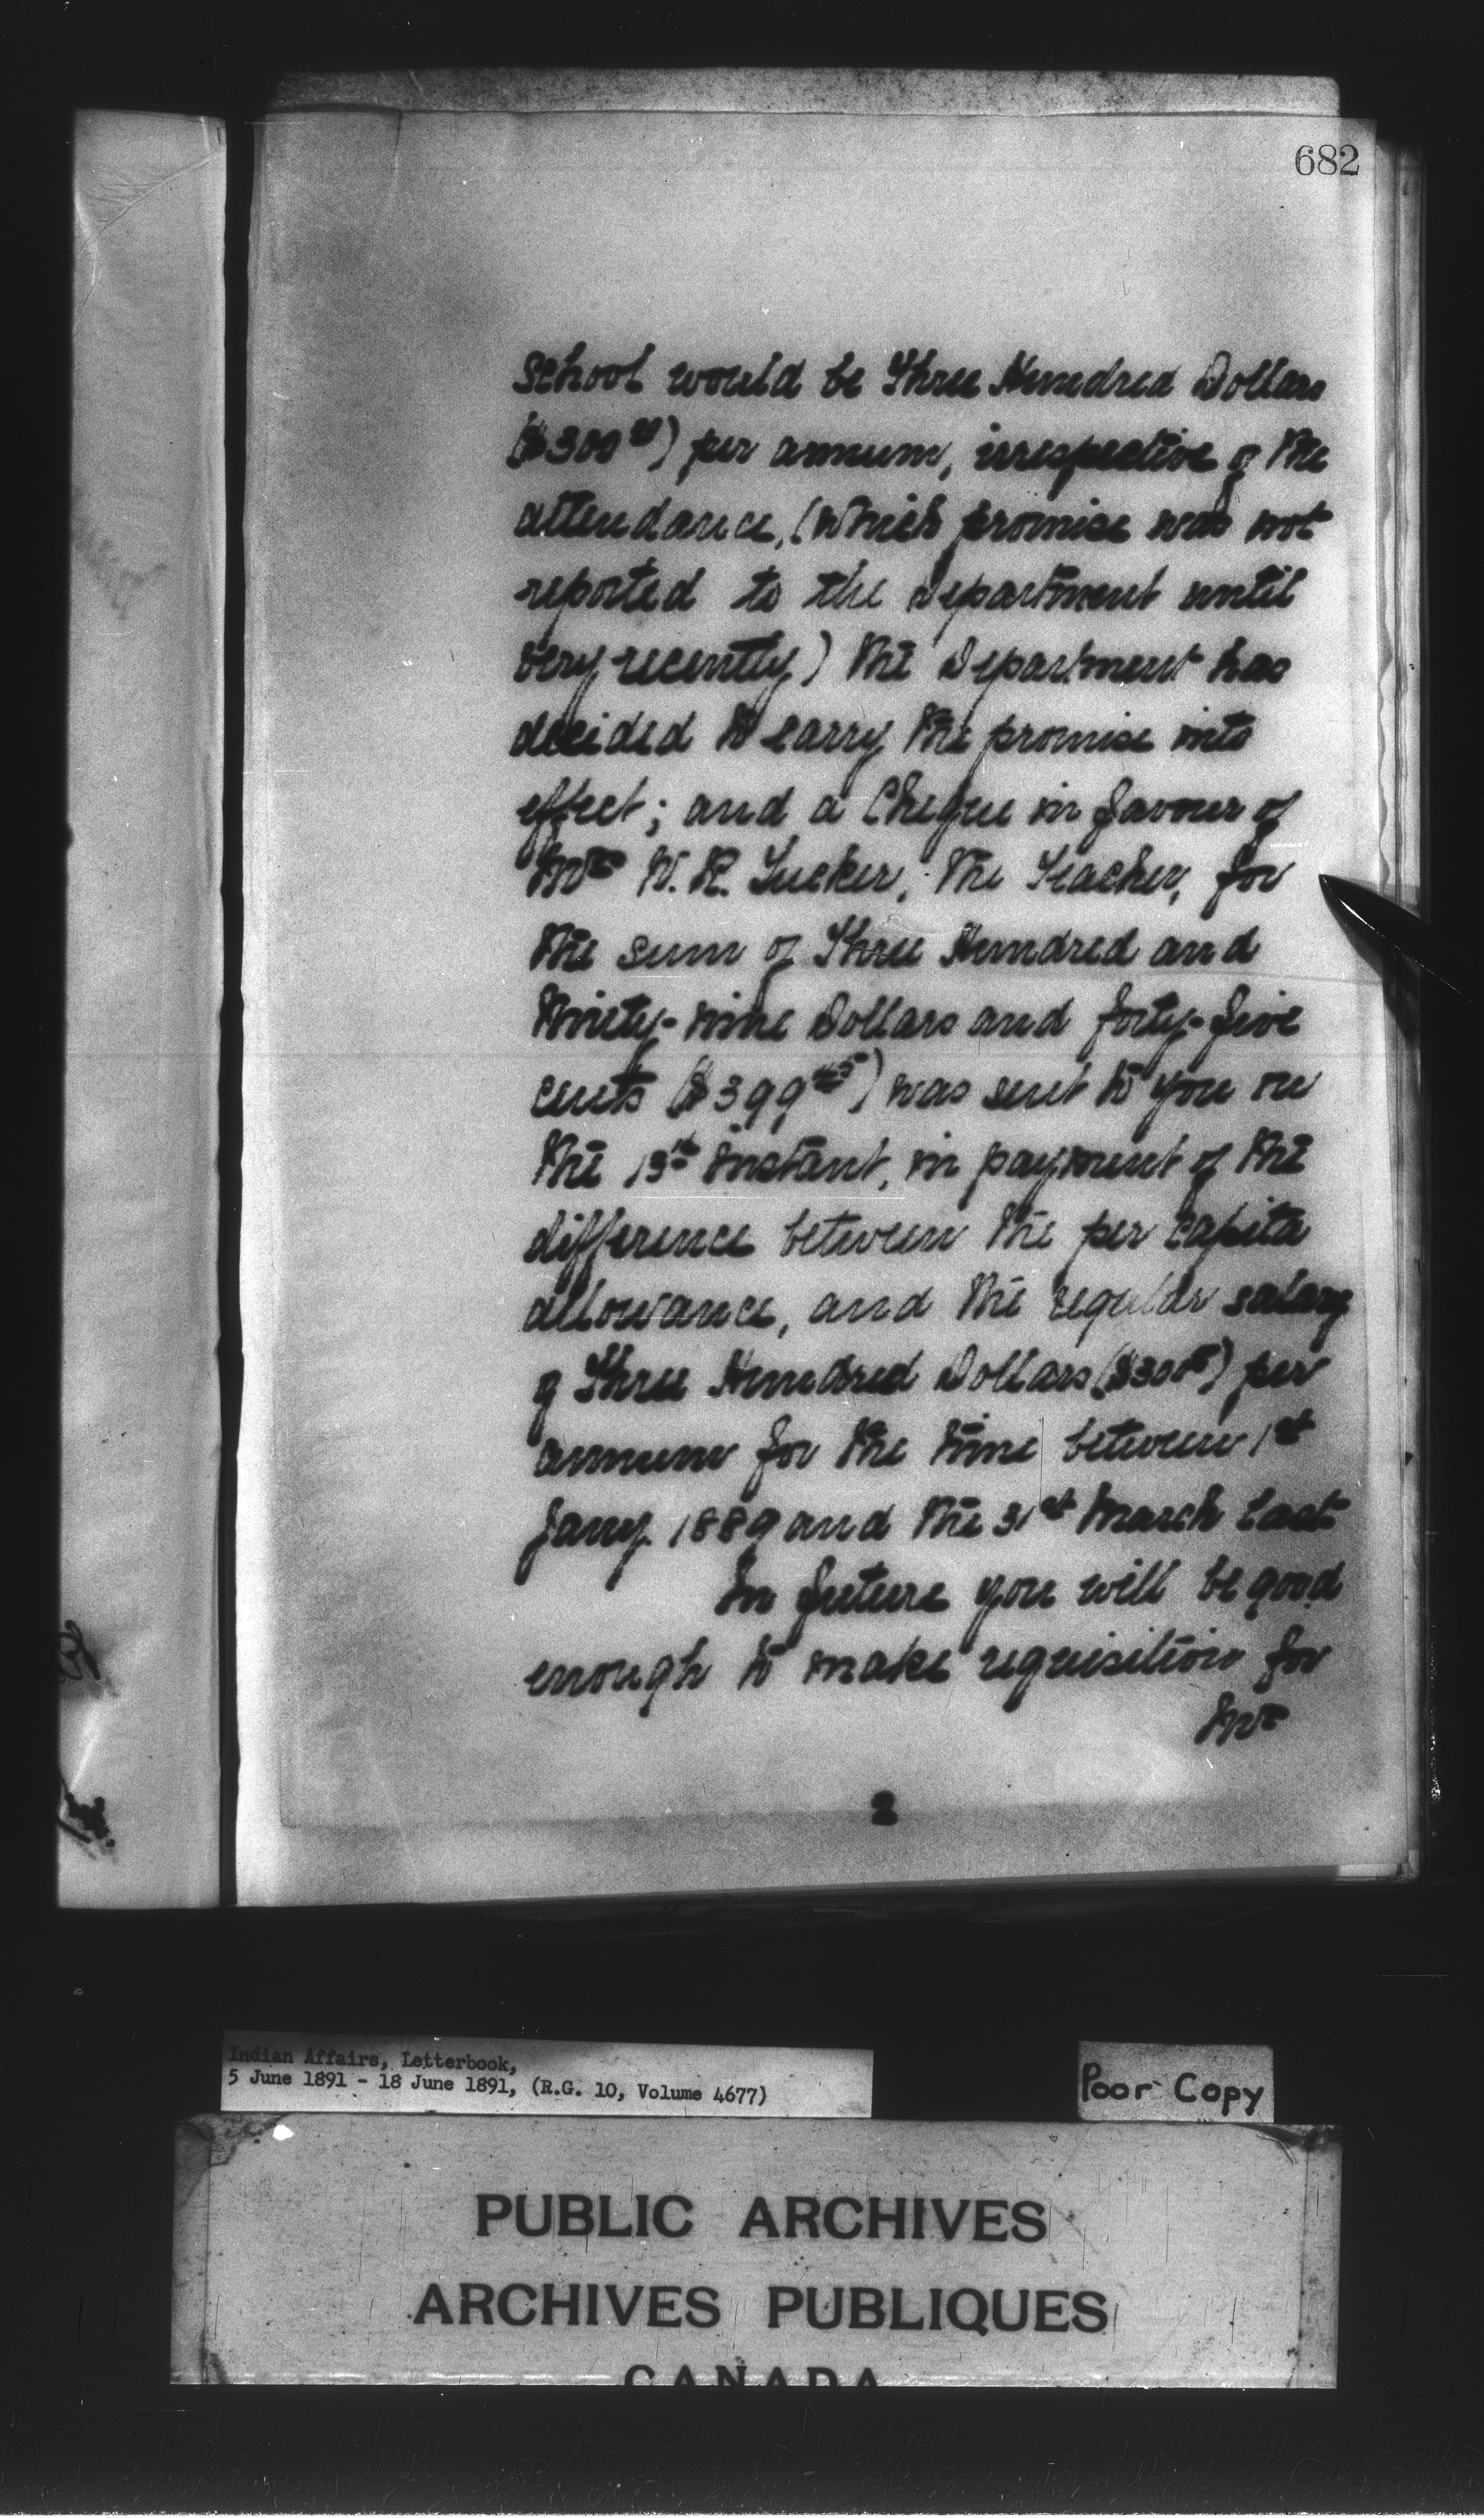 682
school would be Three Hundred Dollars
($300⁰⁰) per annum, irrespective of the
attendance, (which promise was not
reported to the Department until
very recently) the Department has
decided to carry the promise into
effect; and a Cheque in favour of
Mr W. R. Tucker, the Teacher, for
the sum of Three Hundred and
Ninety-nine Dollars and forty-five
cents ($399⁴⁵) was sent to you on
the 13th instant, in payment of the
difference between the per capita
allowance, and the regular salary
of Three Hundred Dollars ($300⁰⁰) per
annum for the time between 1st
Jany. 1889 and the 31st March last
In future you will be good
enough to make requisition for
Mr
2
Indian Affairs, Letterbook,
5 June 1891 - 18 June 1891, (R.G. 10, Volume 4677)
Poor Copy
PUBLIC ARCHIVES
ARCHIVES PUBLIQUES
CANADA